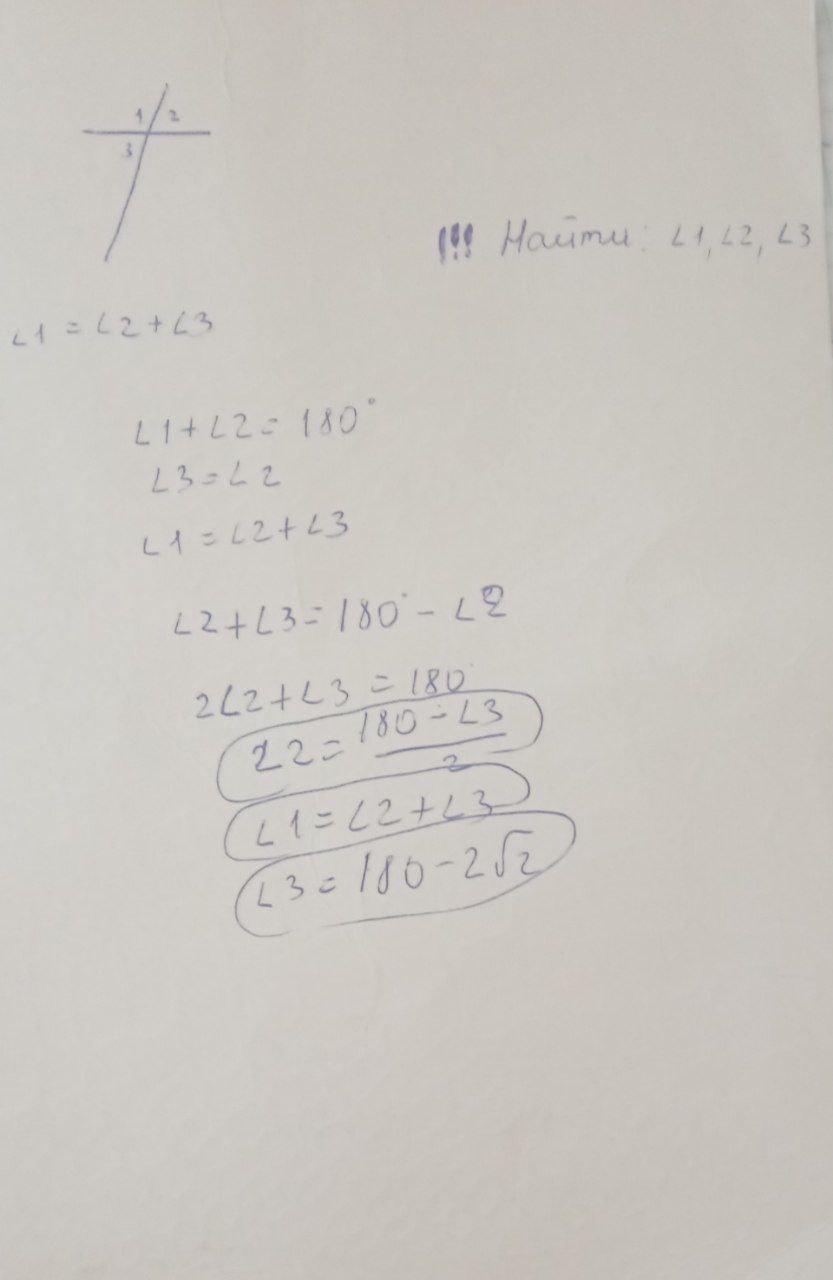 1 2
3
!!! Найти: ∠1, ∠2, ∠3
∠1 = ∠2 + ∠3
∠1 + ∠2 = 180°
∠3 = ∠2
∠1 = ∠2 + ∠3
∠2 + ∠3 = 180° - ∠2
2∠2 + ∠3 = 180°
∠2 = (180 - ∠3) / 2
∠1 = ∠2 + ∠3
∠3 = 180 - 2√2